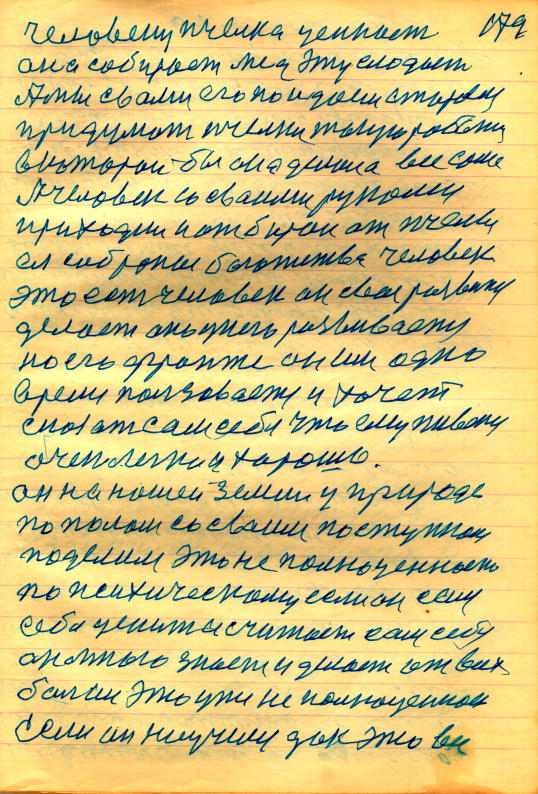 человеку пчелка ценност 079
она собирает мед эту слодост
А мы с вами его поидоем старому
придумат пчелки такую работу
в которой-бы она денна весомо
А человек со своими руками
приходит и отбирает от пчелы
ее собраное богатства человек
это ест человек он свое развитку
делает оно у него развиваеть
но его фронте он им одно
время ползоваеть и хочет
сказат сам себе что ему живому
очен легко и хорошо.
он на нашей земли у природе
по полам со своим поступком
поделим это не полноценност
по психическому если он сам
себя ценит и считает сам себе
он много знает и делает от всех
болше это уже не полноценност
если он научит док это все